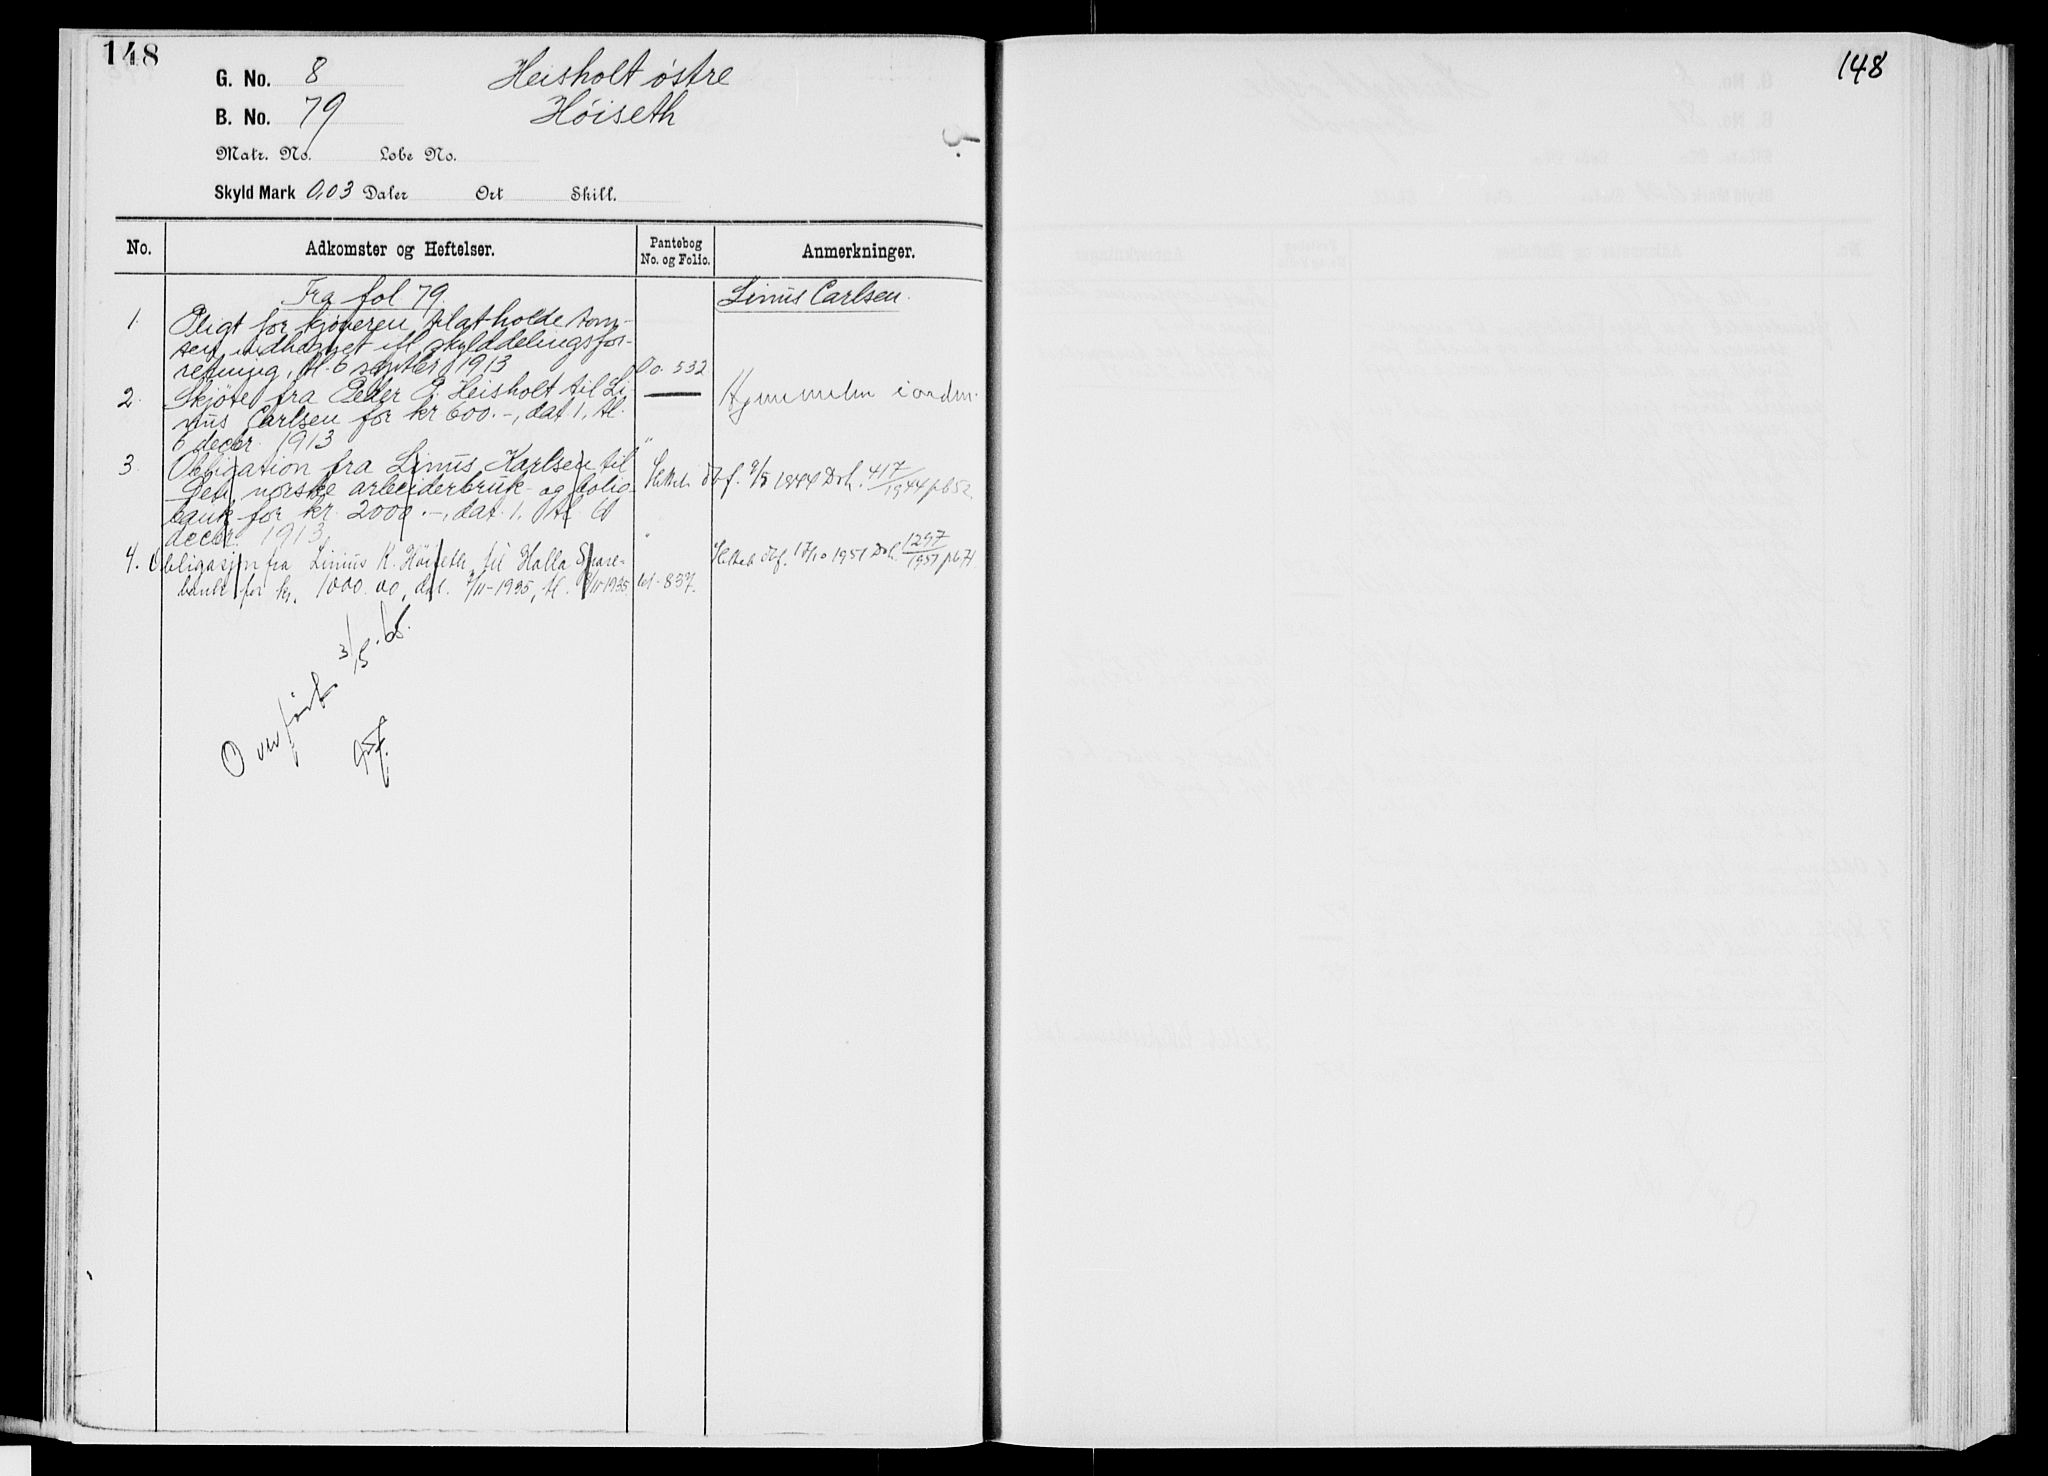 148
G. No. 8 Heisholt østre
B. No. 79 Høiseth
Matr. No. Løbe No.
Skyld Mark 0,03 Daler Ort Skill.
No. Adkomster og Heftelser. Pantebog No. og Folio. Anmerkninger.
Fra fol 79. Linus Carlsen.
1. Pligt for kjøperen til at holde tom-
ten indhegnet ifl skylddelingsfor-
retning, tl. 6 septbr 1913 Oo. 532
2. Skjøte fra Peder P. Heisholt til Li- Hjemmelen i orden.
nus Carlsen for kr 600.-, dat 1, tl.
6 decbr. 1913 "
3. Obligation fra Linus Karlsen til
Den norske arbeiderbruk- og bolig- Slettet dbf. 9/5 1944 Dok. 417/1944 pb52
bank for kr. 2000.-, dat. 1. tl. 6
decbr. 1913 "
4. Obligasjon fra Linus K. Høiseth til Holla Spare- Slettet dbf. 17/10 1951 Dok. 1297/1951 pb71
bank for kr. 1000.00, dat. 7/11-1935, tl. 8/11 1935. 837.
Overført 3/5.65.
148